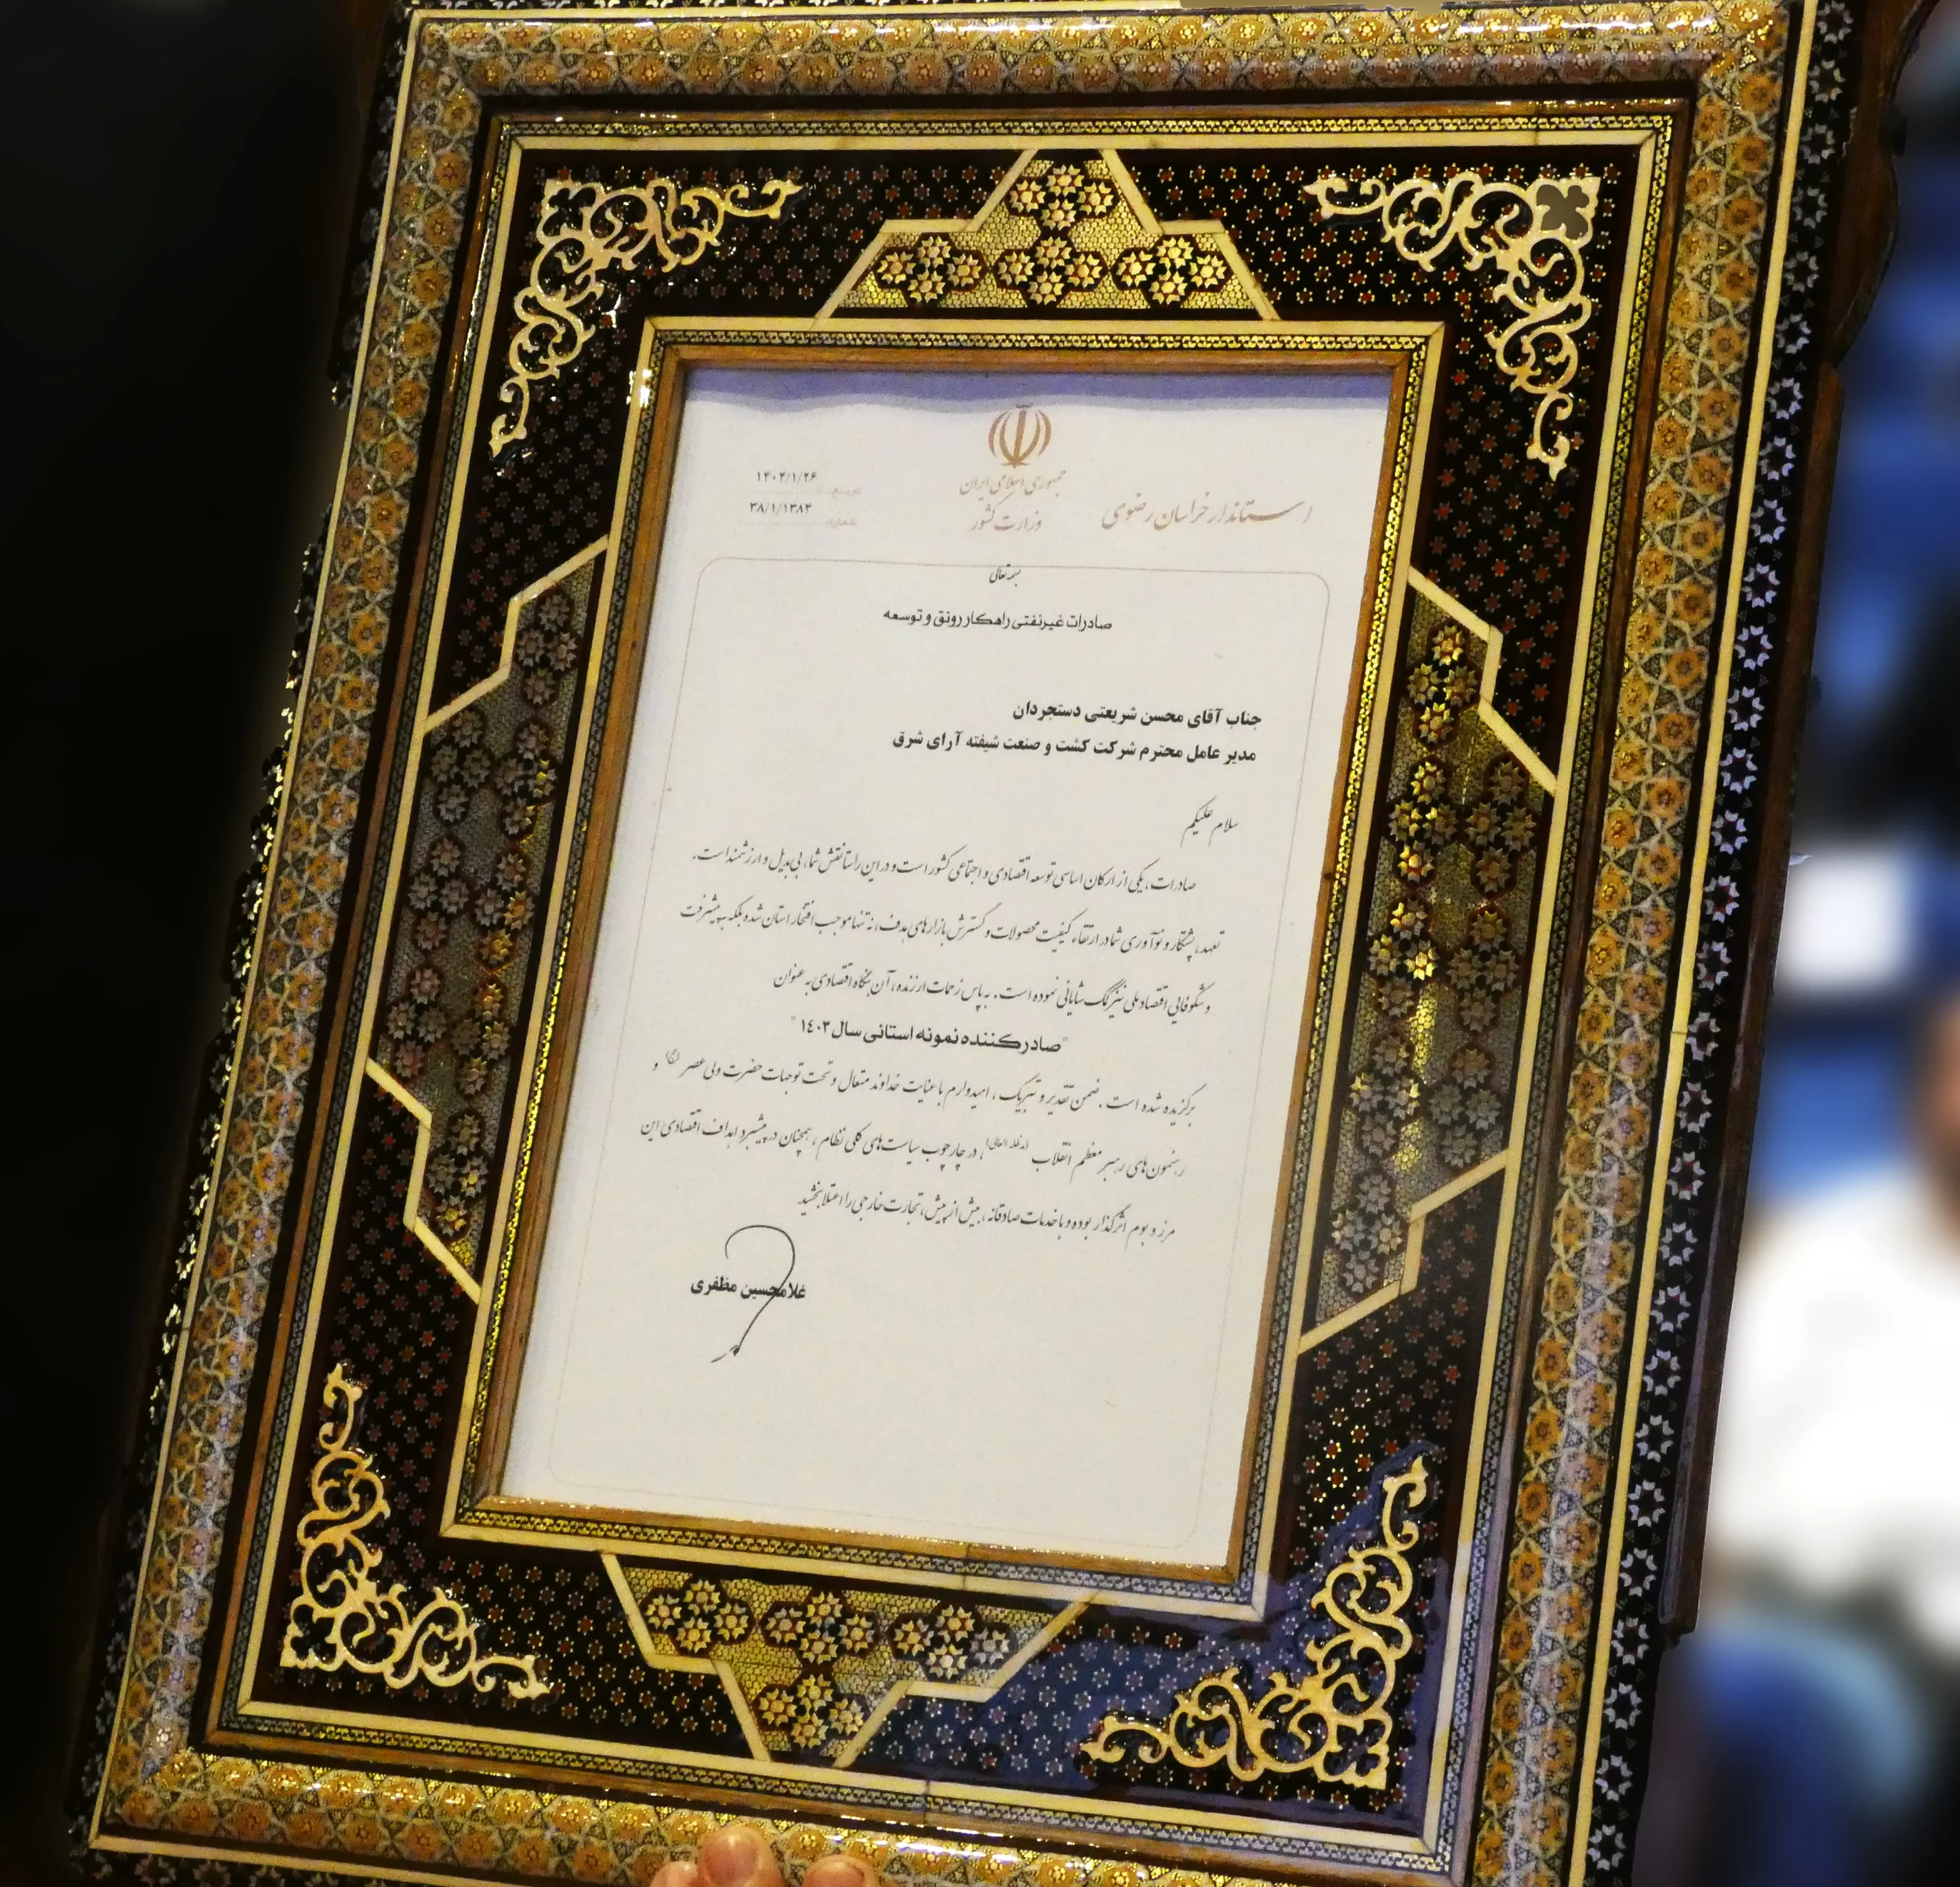 جمهوری اسلامی ایران
وزارت کشور
استاندار خراسان رضوی
۱۴۰۴/۱/۲۶
۳۸/۱/۱۳۸۴
شماره
بسمه تعالی
صادرات غیرنفتی راهکار رونق و توسعه
جناب آقای محسن شریعتی دستجردان
مدیر عامل محترم شرکت کشت و صنعت شیفته آرای شرق
سلام علیکم
صادرات، یکی از ارکان اساسی توسعه اقتصادی و اجتماعی کشور است و در این راستا نقش شما، بی‌بدیل و ارزشمند است.
تعهد، پشتکار و نوآوری شما در ارتقاء کیفیت محصولات و گسترش بازارهای هدف، نه تنها موجب افتخار استان شده بلکه به پیشرفت
و شکوفایی اقتصاد ملی نیز کمک شایانی نموده است. به پاس زحمات ارزنده، آن بنگاه اقتصادی به عنوان
"صادرکننده نمونه استانی سال ۱٤۰۳"
برگزیده شده است. ضمن تقدیر و تبریک، امیدوارم با عنایت خداوند متعال و تحت توجهات حضرت ولی عصر (عج) و
رهنمون‌های رهبر معظم انقلاب (مدظله العالی)، در چارچوب سیاست‌های کلی نظام، همچنان در پیشبرد اهداف اقتصادی این
مرز و بوم اثرگذار بوده و با خدمات صادقانه، بیش از پیش، تجارت خارجی را اعتلا بخشید
غلامحسین مظفری